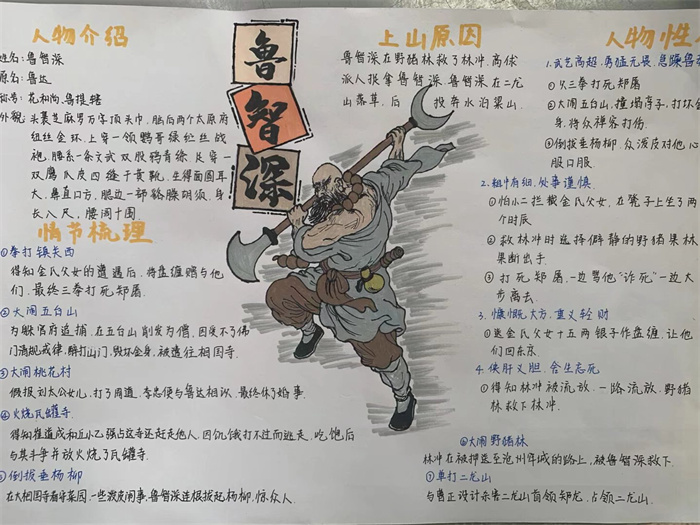 人物介绍
姓名：鲁智深
原名：鲁达
称号：花和尚、鲁提辖
外貌：头裹芝麻罗万字顶头巾，脑后两个太原府
纽丝金环，上穿一领鹦哥绿纻丝战
袍，腰系一条文武双股鸦青绦，足穿一
双鹰爪皮四缝干黄靴，生得面圆耳
大，鼻直口方，腮边一部貉臊胡须，身
长八尺，腰阔十围。
情节梳理
①拳打镇关西
得知金氏父女的遭遇后，将盘缠赠与他
们，最终三拳打死郑屠.
②大闹五台山
为躲官府追捕，在五台山削发为僧，因受不了佛
门清规戒律，醉打山门，毁坏金身，被遣往相国寺.
③大闹桃花村
假报刘太公女儿，打了周通，李忠便与鲁达相认，最终休了婚事.
④火烧瓦罐寺.
得知崔道成和丘小乙强占这寺还赶走他人，因饥饿打不过而逃走，吃饱后
与其斗争并放火烧了瓦罐寺.
⑤倒拔垂杨柳
在大相国寺看守菜园，一些泼皮闹事，鲁智深连根拔起杨柳，惊众人.
鲁
智
深
上山原因
鲁智深在野猪林救了林冲，高俅
派人报拿鲁智深，鲁智深在二龙
山落草，后投奔水泊梁山.
人物性
1.武艺高超、勇猛无畏、急躁鲁
①三拳打死郑屠
②大闹五台山，撞塌亭子，打坏金
身，将众禅客打伤.
③倒拔垂杨柳，众泼皮对他心
服口服.
2.粗中有细、处事谨慎.
①怕小二拦截金氏父女，在凳子上坐了两
个时辰
②救林冲时选择僻静的野猪林
果断出手.
③打死郑屠，一边骂他“诈死”一边大
步离去.
3.慷慨大方、重义轻财
①送金氏父女十五两银子作盘缠，让他
们回东京.
4.侠肝义胆 舍生忘死
①得知林冲被流放，一路流放，野猪
林救下林冲.
⑥大闹野猪林
林冲在被押送至沧州牢城的路上，被鲁智深救下.
⑦单打二龙山
与曹正设计杀害二龙山首领邓龙，占领二龙山.